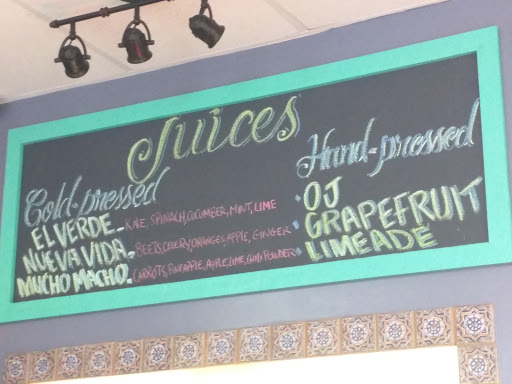 Juices
Cold-pressed
EL VERDE - KALE, SPINACH, CUCUMBER, MINT, LIME
NUEVA VIDA - BEETS, CELERY, ORANGES, APPLE, GINGER
MUCHO MACHO - CARROTS, PINEAPPLE, APPLE, LIME, CHILI POWDER
Hand-pressed
• OJ
• GRAPEFRUIT
• LIMEADE